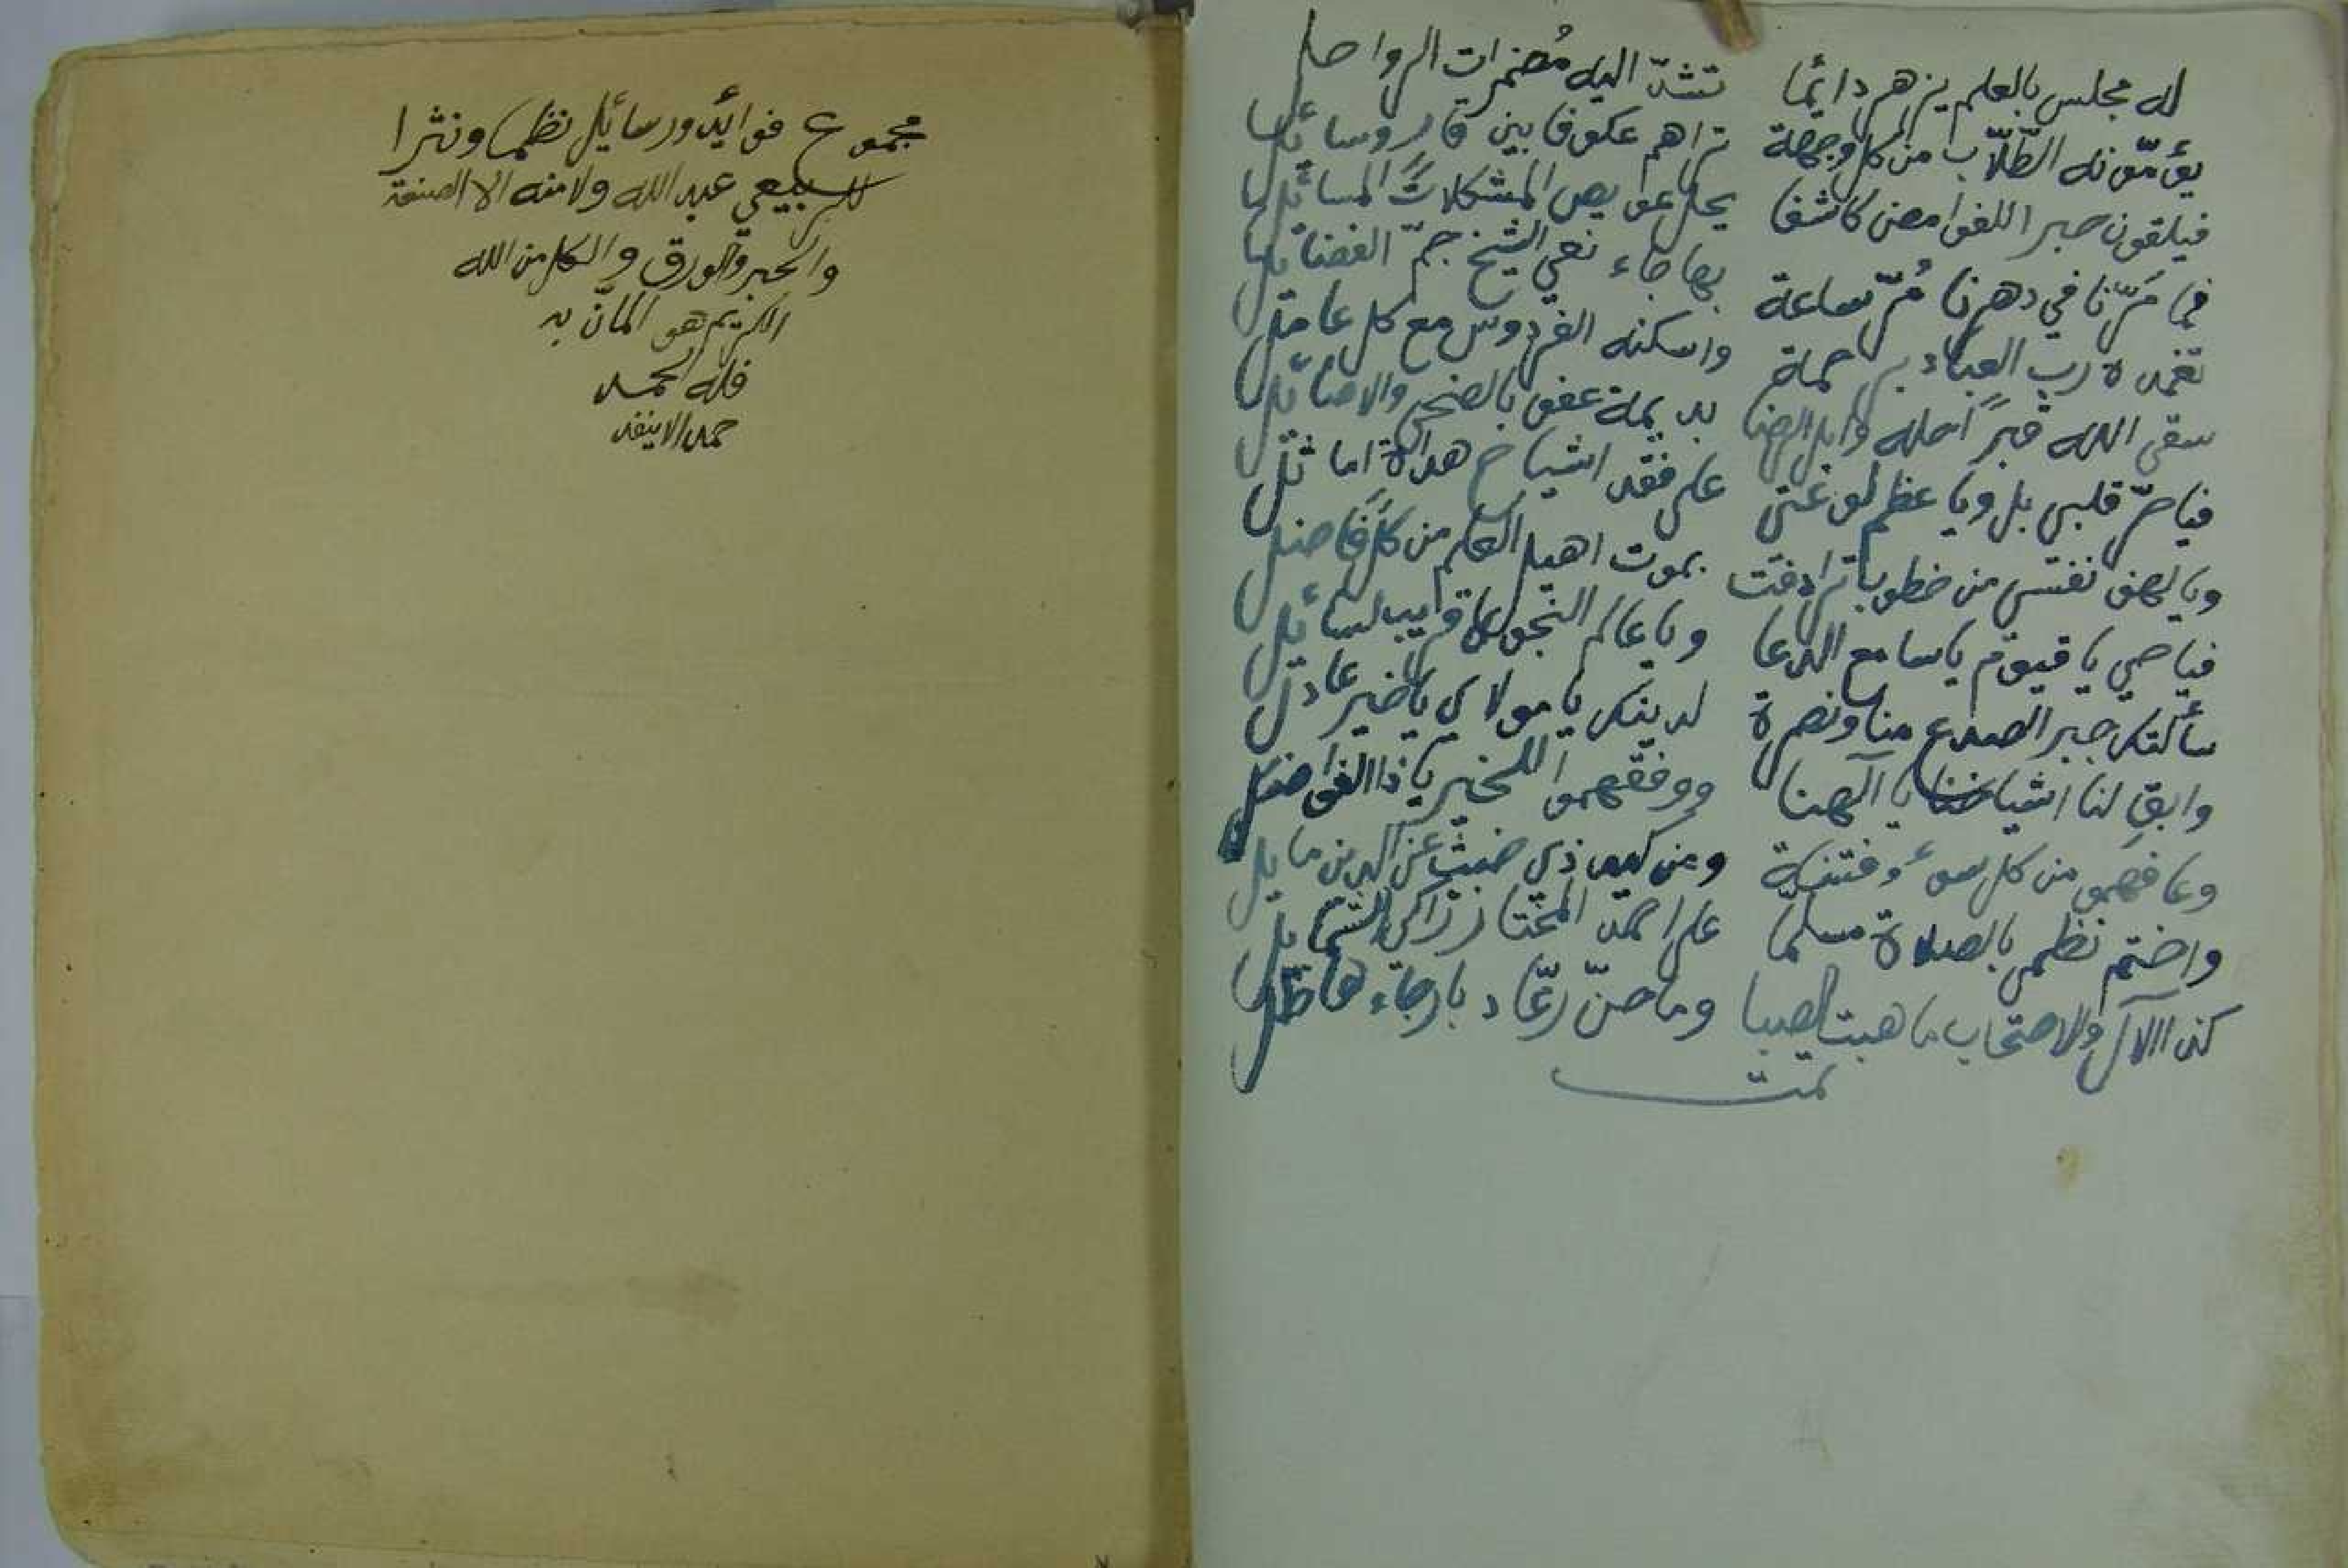 له مجلس بالعلم يزهر دائما تشدّ اليه مُضمرات الرواحل
يؤمّونه الطّلاب من كل وجهة تراهم عكوفا بين قار وسائل
فيلقون حبرا للغوامض كاشفا يحل عويص المشكلات المسائل
فما مَرّنا في دهرنا مُرّ ساعة بها جاء نعي الشيخ جمّ الفضائل
تغمده رب العباد برحمة واسكنه الفردوس مع كل عامل
سقى الله قبرا حله وابل الرضا بديمة عفو بالضحى والاصائل
فياحرّ قلبي بل ويا عظم لوعتي على فقد اشياخ هداة اماثل
ويالهف نفسي من خطوب ترادفت بموت اهيل العلم من كل فاضل
فياحي يا قيوم يا سامع الدعا ويا عالم النجوى قريب لسائل
سألتك جبر الصدع منا ونصرة لدينك يا مولاي يا خير عادل
وابق لنا اشياخنا يا آلهنا ووفقهموا للخير يا ذا الفواضل
وعافهمو من كل سوء وفتنة ومن كيد ذي خبث عن الدين مايل
واختم نظمي بالصلاة مسلما على احمد المختار زاكي الشمايل
كذا الآل والاصحاب ما هبت الصبا وما حنّ رعّاد بارجاء هاطل
تمت
مجموع فوائد ورسائل نظما ونثرا
للسبيعي عبد الله ولا منه الا الصنعة
والحبر والورق والكل من الله
الكريم هو المانّ به
فله الحمد
حمدا لا ينفد